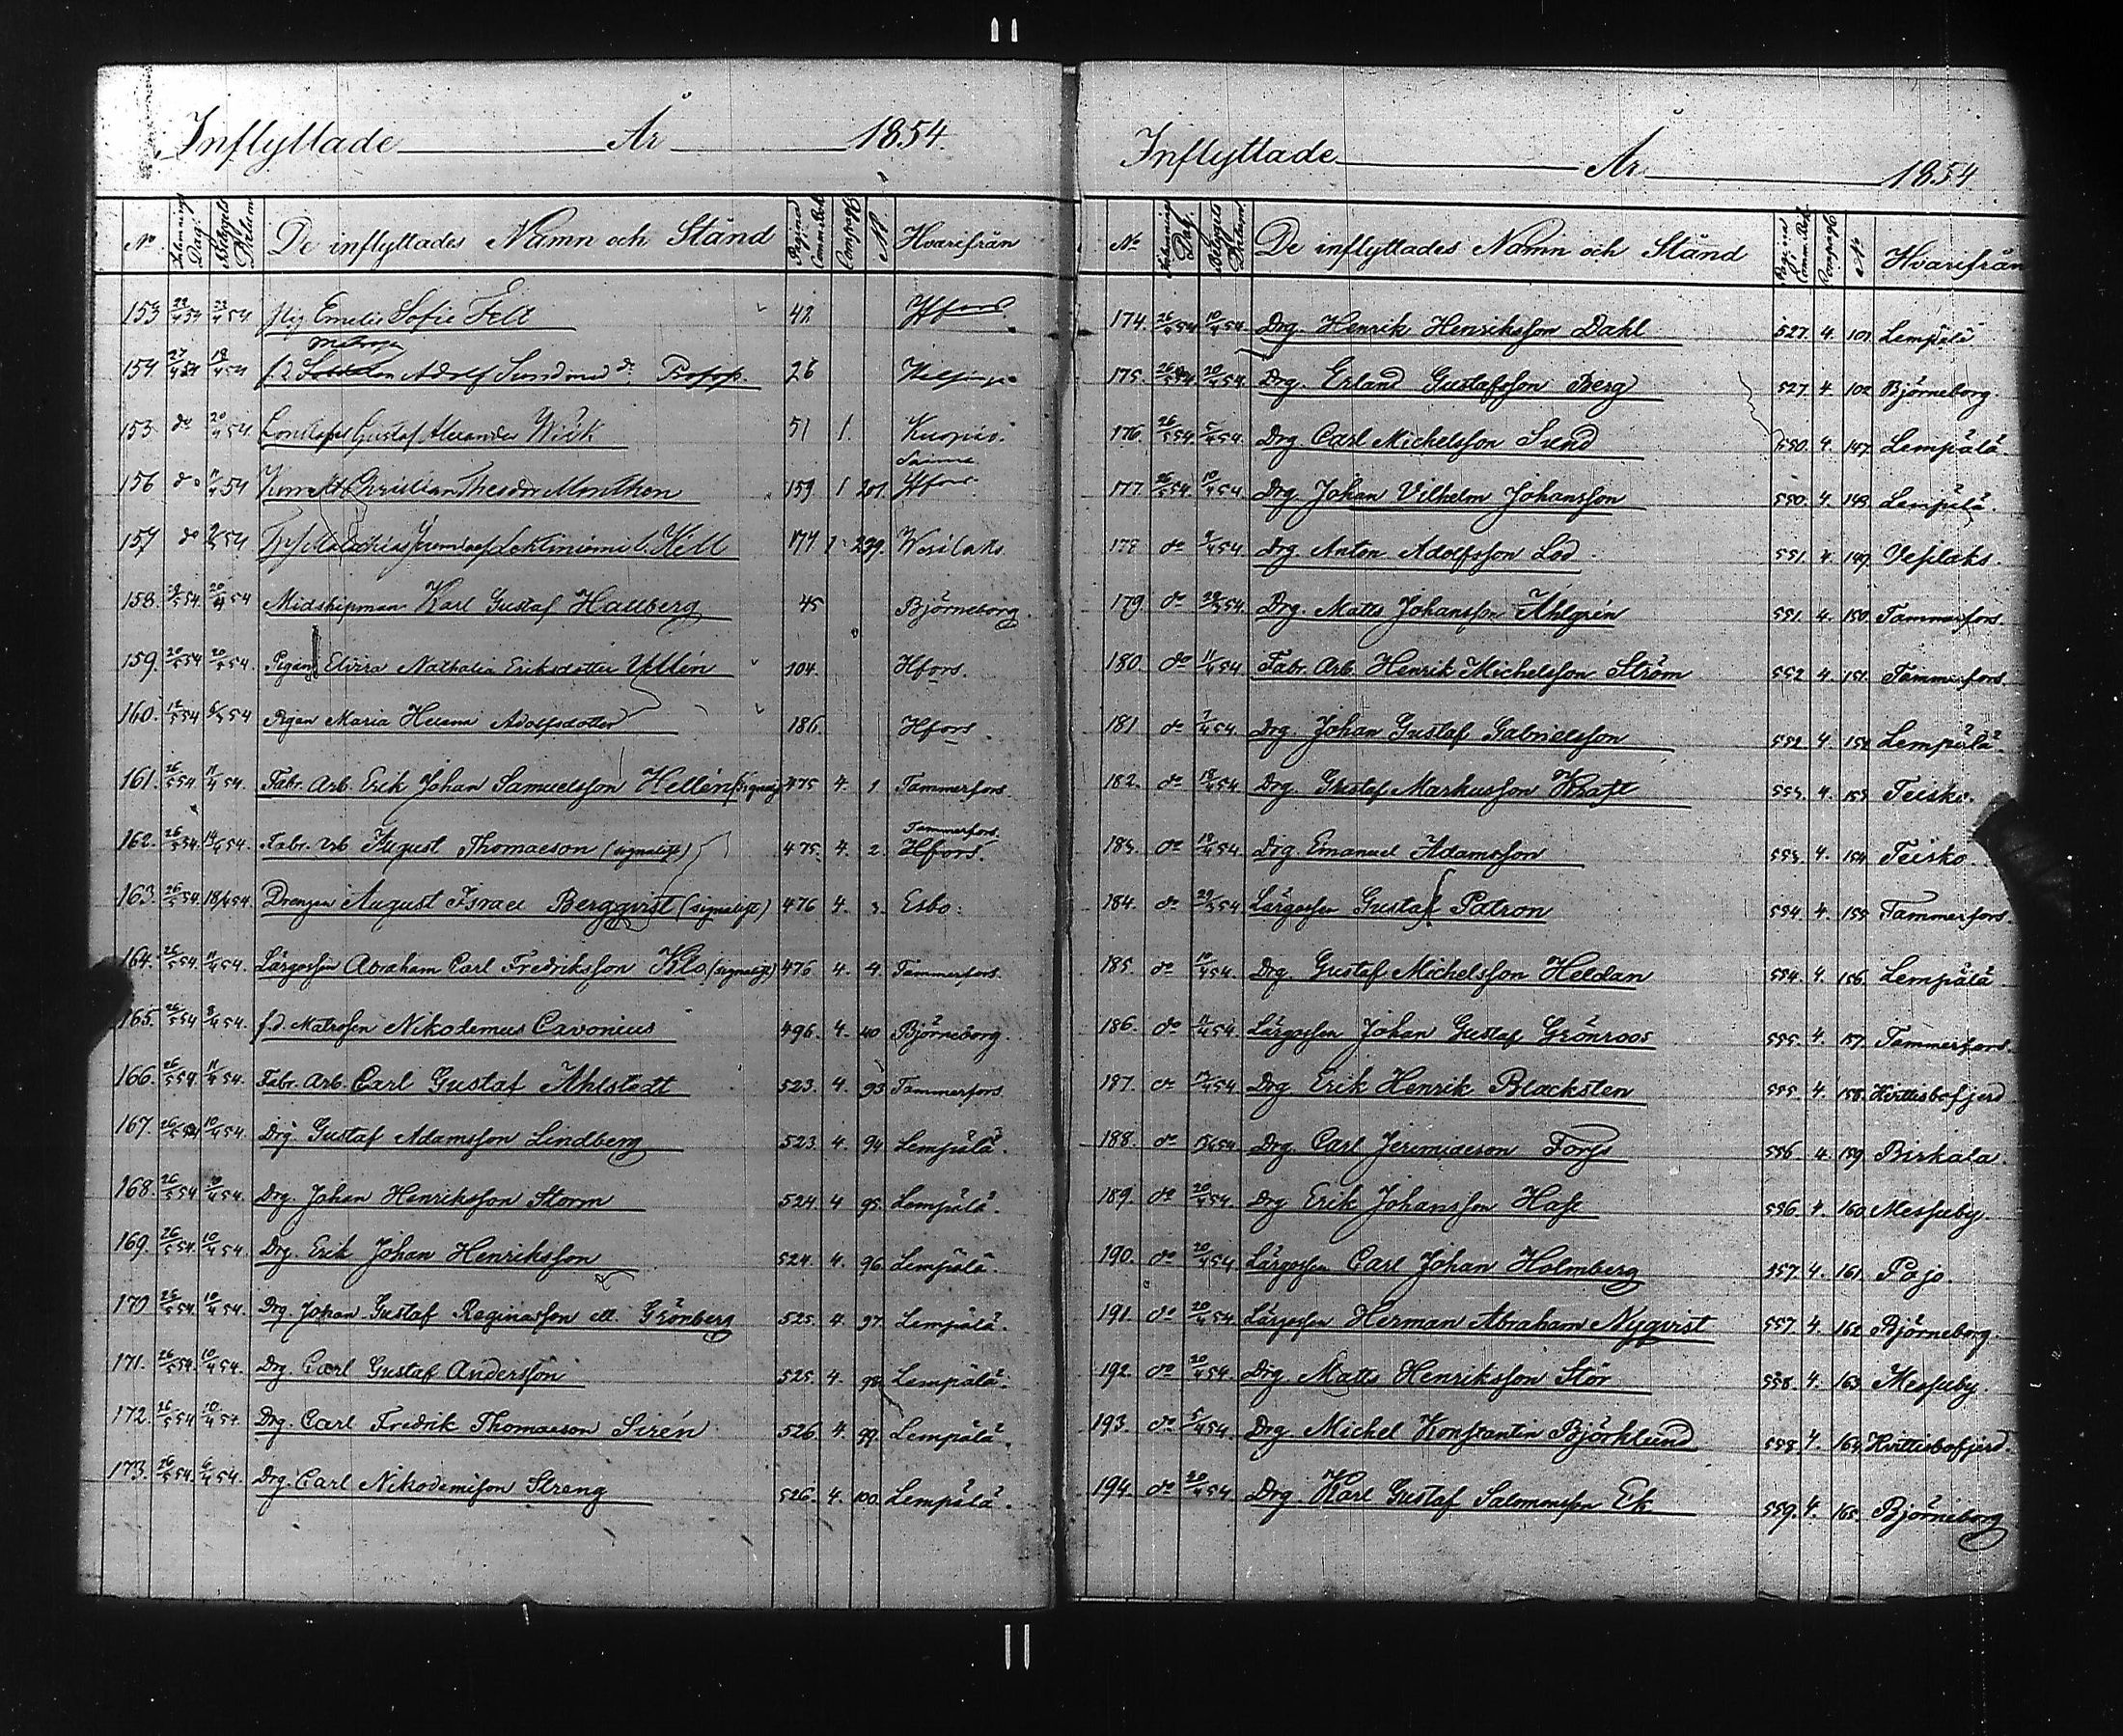 Inflyttade År 1854.
No Inlemnings Dag. Betygets Datum De inflyttades Namn och Stånd Pagina i Comm. Bok Compagi No. Hvarifrån
153 22/4 54 22/4 54 Pig. Emelie Sofie Felt 42 Hfors
Matros
154 27/4 54 19/4 54 f.d. Adolf Sundman 26
153 do 20/4 54 Gustaf Alexander Wiök 51 1. Kuopio.
156 do 11/4 54 Christian Theodor Monthen 159 1 201. Hfors.
157 do 2/5 54 177 1 239. Wesilaks
158. 54. 20/4 54 Midshipman Karl Gustaf Hallberg 45 Björneborg.
159. 20/5 54 20/5 54. Pigan Elvira Nathalia Eriksdotter 104. Hfors.
160. 12/5 54 5/5 54 Pigan Maria Helena Adolfsdotter 186. Hfors.
161. 26/5 54 11/4 54. Fabr. Arb. Erik Johan Samuelsson Hellén 475 4. 1. Tammerfors
Tammerfors.
162. 26/5 54. 14/4 54. Fabr. Arb August Thomaeson (signalist) 475. 4. 2. Hfors.
163. 26/5 54. 18/4 54 Drengen August Israel Bergqvist (signalist) 476 4. 3. Esbo.
164. 26/5 54. 11/4 54. Lärgossen Abraham Carl Fredriksson Klo (signalist) 476 4. 4. Tammerfors.
165. 26/5 54 8/4 54. f.d. Matrosen Nikodemus Cavonius 496. 4. 40 Björneborg.
166. 26/5 54. 11/4 54. Fabr. Arb. Carl Gustaf Ahlstedt 523. 4. 93 Tammerfors.
167. 26/5 54 10/4 54. Drg. Gustaf Adamsson Lindberg 523. 4. 94 Lempälä.
168. 26/5 54 10/4 54. Drg. Johan Henriksson Storm 524. 4 95. Lempälä.
169. 26/5 54. 10/4 54. Drg. Erik Johan Henriksson 524. 4. 96 Lempälä.
170 26/5 54. 10/4 54. Drg. Johan Gustaf Reginasson ell. Grönberg 525. 4 97. Lempälä.
171. 26/5 54. 10/4 54. Drg. Carl Gustaf Andersson 525. 4. 98 Lempälä.
172. 26/5 54 10/4 54. Drg. Carl Fredrik Thomaeson Sirén 526. 4. 99. Lempälä.
173. 26/5 54. 6/4 54. Drg. Carl Nikodemison Streng 526. 4. 100. Lempälä.
Inflyttade År 1854
No Inlemnings Dag. Betygets Datum De inflyttades Namn och Stånd Pagina i Comm. Bok. Compagi No Hvarifrån
174. 26/5 54 10/4 54. Drg. Henrik Henriksson Dahl 527. 4. 101. Lempälä
175. 26/5 54 20/4 54. Drg. Erland Gustafsson Berg 527. 4. 102. Björneborg
176. 26/5 54 5/4 54. Drg. Carl Michelsson Sund 550. 4. 147. Lempälä.
177. 26/5 54. 10/4 54. Drg. Johan Vilhelm Johansson 550. 4. 148. Lempälä.
178 do 9/4 54. Drg. Anton Adolfsson Lod 551. 4. 149. Vesilaks.
179. do 54. Drg. Matts Johansson Ahlgrén 551. 4. 150. Tammerfors.
180. do 11/4 54. Fabr. Arb. Henrik Michelsson Ström 552 4. 151. Tammerfors.
181 do 7/4 54. Drg. Johan Gustaf Gabrielsson 552 4. 152 Lempälä.
182. do 18/4 54. Drg. Gustaf Markusson Kraft 553. 4. 153 Teisko.
183. do 18/4 54. Drg. Emanuel Adamsson 553. 4. 154 Teisko.
184. do 54 Lärgossen Gustaf Patron 554. 4. 155 Tammerfors.
185. do 10/4 54. Drg. Gustaf Michelsson Heldan 554. 4. 156. Lempälä.
186. do 11/4 54. Lärgossen Johan Gustaf Grönroos 555. 4. 157. Tammerfors.
187. do 54. Drg Erik Henrik Blacksten 555. 4. 158. Hvittisbofjerd
188. do 54 Drg. Carl Jeremiaeson Forss 556 4. 159 Birkala.
189. do 20/4 54. Drg Erik Johansson Haft 556. 4. 160. Messuby.
190. do 20/4 54 Lärgossen Carl Johan Holmberg 557. 4. 161. Pojo.
191. do 20/4 54. Lärgossen Herman Abraham Nyqvist 557. 4. 162 Björneborg.
192. do 20/4 54. Drg. Matts Henriksson Stör 558. 4. 163. Messuby.
193. do 5/4 54. Drg. Michel Konstantin Björklund 558. 4. 164. Hvittisbofjerd.
194. do 20/4 54 Drg. Karl Gustaf Salomonsson Ek 559. 4. 165. Björneborg